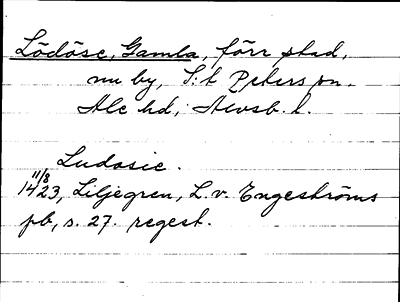 Lödöse, Gamla, förr stad,
nu by, S:t Peters sn.
Ale hd, Älvsb. l.
Ludosie.
11/8
1423, Liljegren, L. v. Engeströms
pb, s. 27. regest.